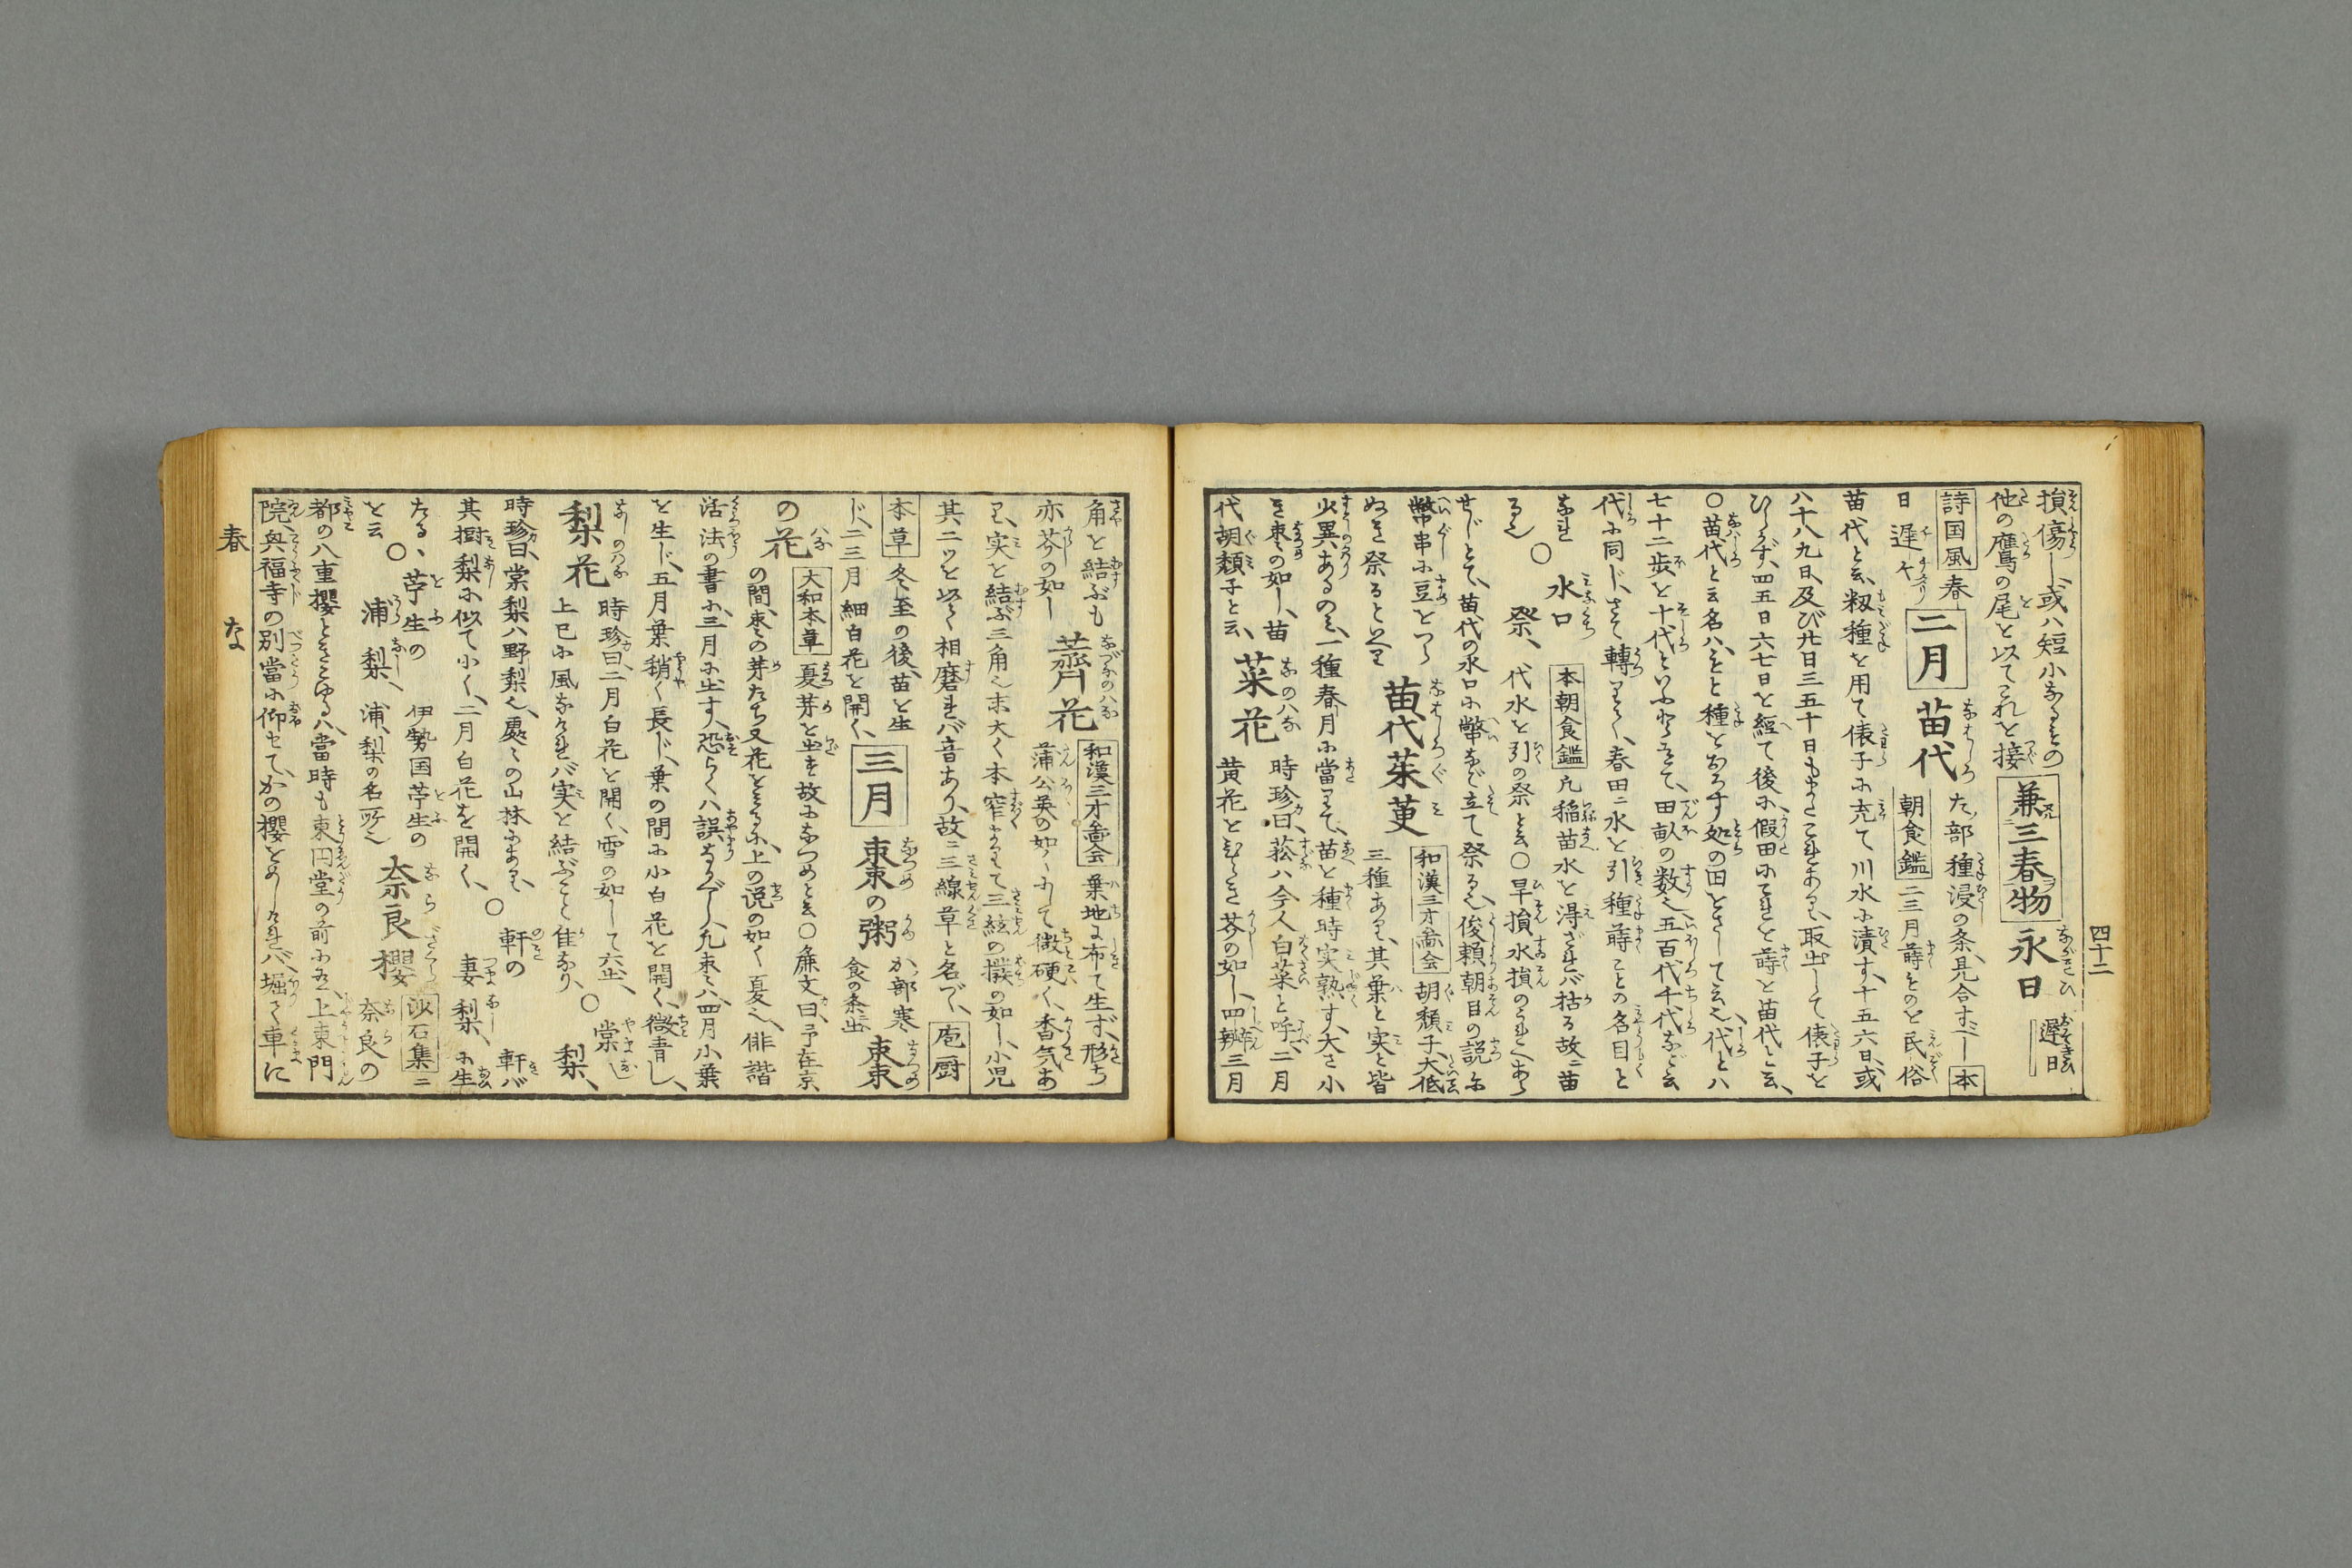 四十二
損傷し、或ハ短小なるもの
他の鷹の尾を以てこれを接 兼三春物 永日 遅日
詩国風 春
日遅々 二月 苗代 た部種浸の条、見合すべし 本
朝食鑑 二三月蒔ものを民俗
苗代と云、籾種を用て俵子に充て川水に漬す、十五六日、或
八十八九日、及び廿日三五十日もまたこれあり、取出して俵子を
ひらかず、四五日六七日を経て後に、假田にこれを蒔を苗代と云、
〇苗代と云名ハ、もと種をおろす処の田をさして云之、代とハ
七十二歩を十代といふよりして、田畝の数之、五百代千代など云
代に同じ、さて轉りて、春田ニ水を引種蒔ことの名目と
なれ
るなり〇水口祭、 本朝食鑑 凡稲苗水を得ざれバ枯る故ニ苗
代水を引の祭と云〇旱損水損のうれへあら
せじとて、苗代の水口に幣など立て祭る也、俊頼朝臣の説に
幣串に豆をつら
ぬき祭るといへり 苗代茱萸 和漢三才圖会 胡頽子、大低
三種あり、其葉と実と皆
少異あるのミ、一種春月に當りて、苗を種時実熟す、大さ小
き棗の如し、苗
代胡頽子と云、 菜花 時珍曰、菘ハ今人白菜と呼、二月
黄花をひらき芥の如し、四瓣三月
角を結ぶも
亦芥の如し 薺花 和漢三才圖会 葉地に布て生ず、形ち
蒲公英の如くにして微硬く、香気あ
り、実を結ぶ三角也末大く本窄くして三絃の撥の如し、小児
其二ツを以て相磨れバ音あり、故ニ三線草と名づく、 庖厨
本草 冬至の後、苗を生
じ、二三月細白花を開く、 三月 棗の粥 か部寒食の条出 棗
の花 大和本草 夏芽を出す故になつめと云〇廉文曰、予在京
の間、棗の芽たち又花をみるに、上の説の如く夏之、俳諧
活法の書に、三月に出す、恐らくハ誤なるべし、凡棗ハ、四月小葉
を生じ、五月葉稍く長じ、葉の間に小白花を開く、微青し、
梨花 時珍曰、二月白花を開く、雪の如して六出、
上巳に風なけれバ実を結ぶこと佳なり、〇棠梨、
時珍曰、棠梨ハ野梨也、處々の山林にあり、
其樹梨に似て小く、二月白花を開く、〇軒の妻梨、 軒バ
に生
たる、〇苧生の浦梨、 伊勢国苧生の
浦、梨の名所之
を云 奈良櫻 沙石集 ニ
奈良の
都の八重櫻ときこゆるハ、當時も東円堂の前に在、上東門
院、興福寺の別當に仰セて、かの櫻をめしけれバ、堀て車に
春 な